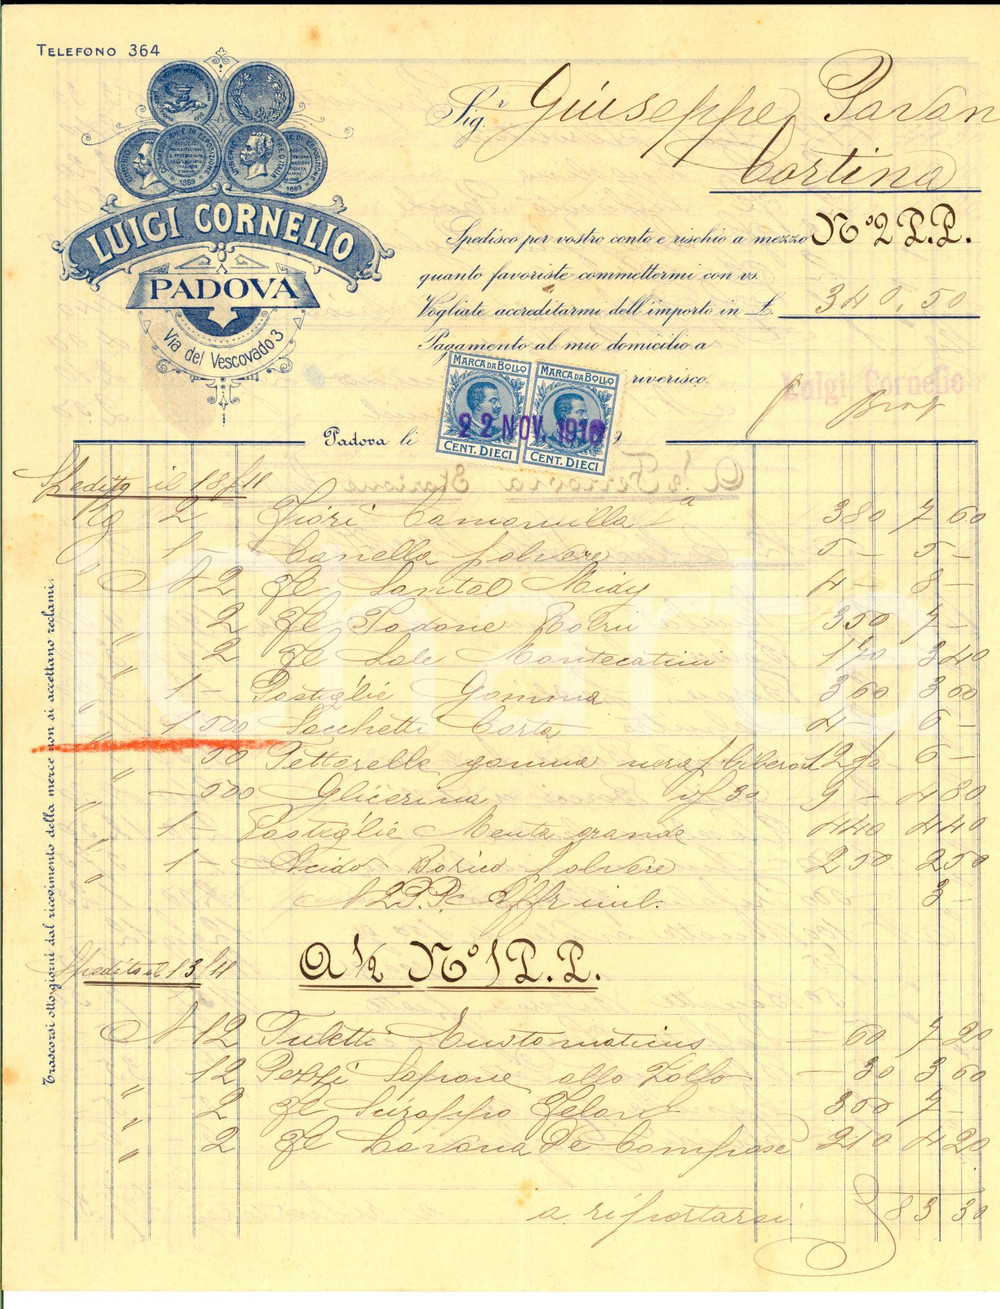 TELEFONO 364
LUIGI CORNELIO
PADOVA
Via del Vescovado 3
Sig.r Giuseppe Pavan
Cortina
Spedisco per vostro conto e rischio a mezzo N° 2 P.P.
quanto favoriste commettermi con vs.
Vogliate accreditarmi dell'importo in £. 340,50
Pagamento al mio domicilio a
riverisco.
Luigi Cornelio
MARCA DA BOLLO MARCA DA BOLLO
22 NOV. 1916
CENT. DIECI CENT. DIECI
Padova li
Spedito il 18/11
Kg 2 Fiori Camomilla 1a 380 7 60
" 1 - Canella polvere 5 - 5 -
N 2 Fl Santal Midy 4 - 8 -
" 2 Fl 350 7 -
" 2 Fl Sale Montecatini 170 3 40
" 1 - Pastiglie Gomma 360 3 60
" 1 500 Sacchetti Carta 4 - 6 -
" 50 Pettorelle gomma nera p. biberon 12% 6 -
" - 500 Glicerina 30 9 - 4 80
" 1 - Pastiglie Menta grande 440 4 40
" 1 - Acido Borico polvere 250 2 50
N 2 P.P. imb. 3 -
Spedito il 13/11 A ½ N° 1 P.P.
N 12 Tubetti 60 7 20
" 12 Pezzi Sapone allo Zolfo - 30 3 60
" 2 Fl Sciroppo 350 7 -
" 2 Fl 210 4 20
a riportarsi 83 30
Trascorsi otto giorni dal ricevimento della merce non si accettano reclami.